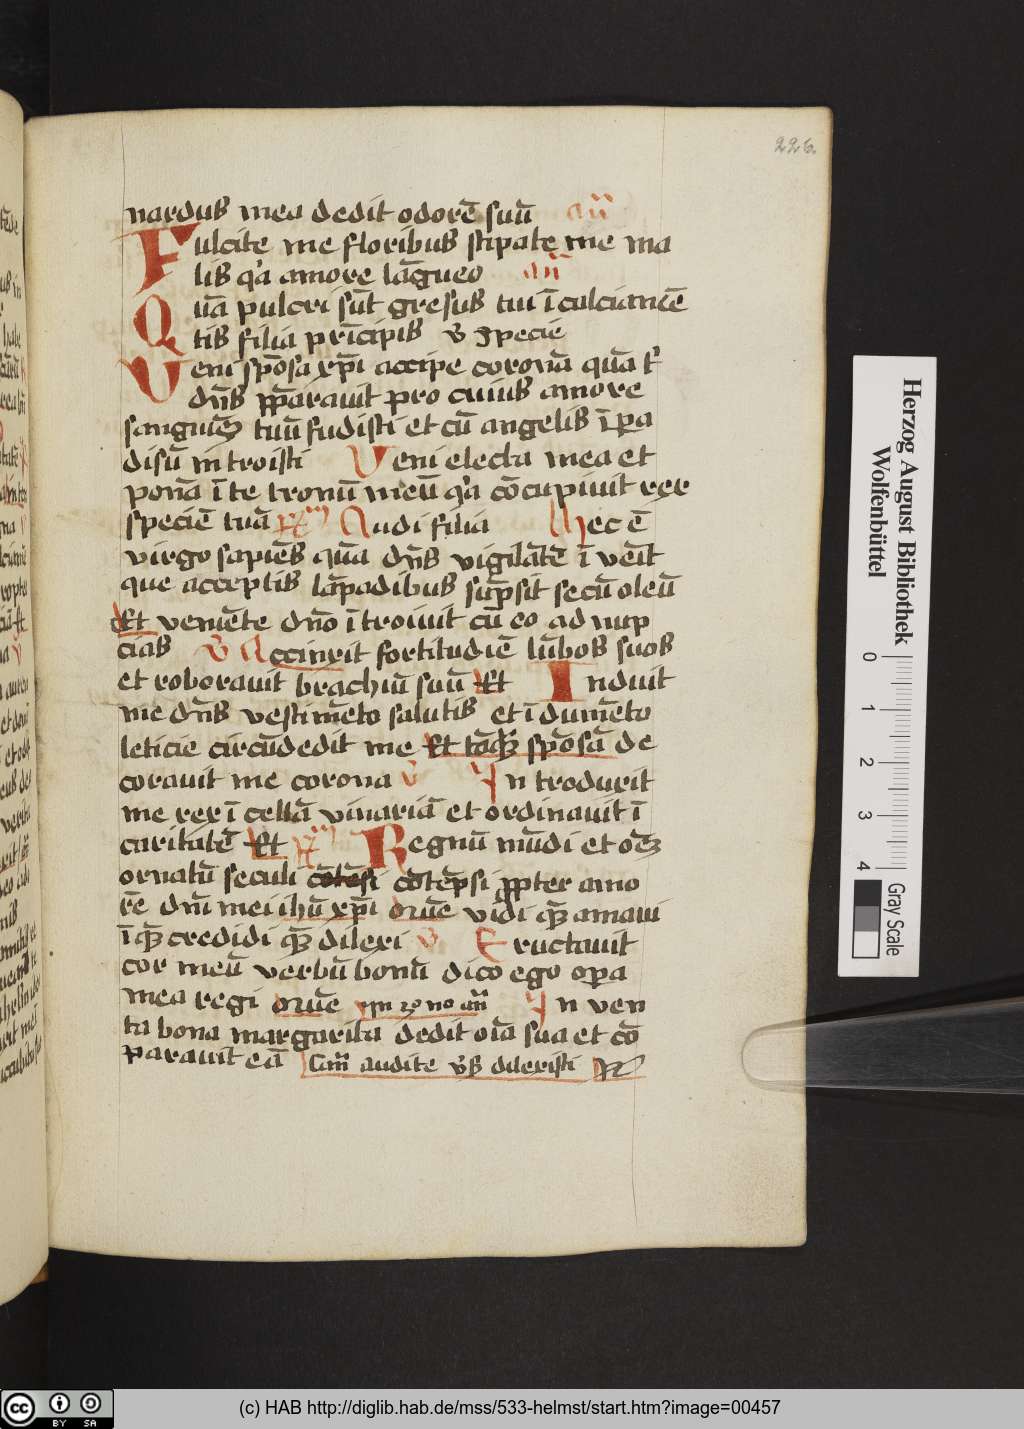 226.
nardus mea dedit odorē suū aīī
Fulcite me floribus stipate me ma
lis q'a amore lāgueo aīī
Quā pulcri sūt gresus tui ī calciamē
tis filia prīcipis v̄ Specie
Veni spōsa xp̄i accipe coronā quā t'
dn̄s p̄parauit pro cuius amore
sanguinē tuū fudisti et cū angelis ī pa
disū introisti Veni electa mea et
ponā ī te tronū meū q'a cōcupiuit rex
speciē tuā Audi filia Hec ē
virgo sapiēs quā dn̄s vigilātē īvēit
que acceptis lāpadibus sūpsit secū oleū
Et veniēte dn̄o ītroiuit cū eo ad nup
cias v̄ Accinxit fortitudīe lūbos suos
et roborauit brachiū suū Et Induit
me dn̄s vestimēto salutis et īdumēto
leticie circūdedit me Et tāq̄ spōsā de
corauit me corona v̄ Introduxit
me rex ī cellā vinariā et ordinauit ī
caritatē Et Regnū mūdi et oēz
ornatū seculi cōtēpsi propter amo
rē dn̄i mei ihū xp̄i quē vidi quē amaui
ī quē credidi quē dilexi v̄ Eructauit
cor meū verbū bonū dico ego opa
mea regi quē ym zo no an̄ Inuen
ta bona margarita dedit oīa sua et cō
parauit eā Cam̄ audite v̄s dilexisti
Herzog August Bibliothek
Wolfenbüttel
0 1 2 3 4
Gray Scale
(c) HAB http://diglib.hab.de/mss/533-helmst/start.htm?image=00457
cc BY SA